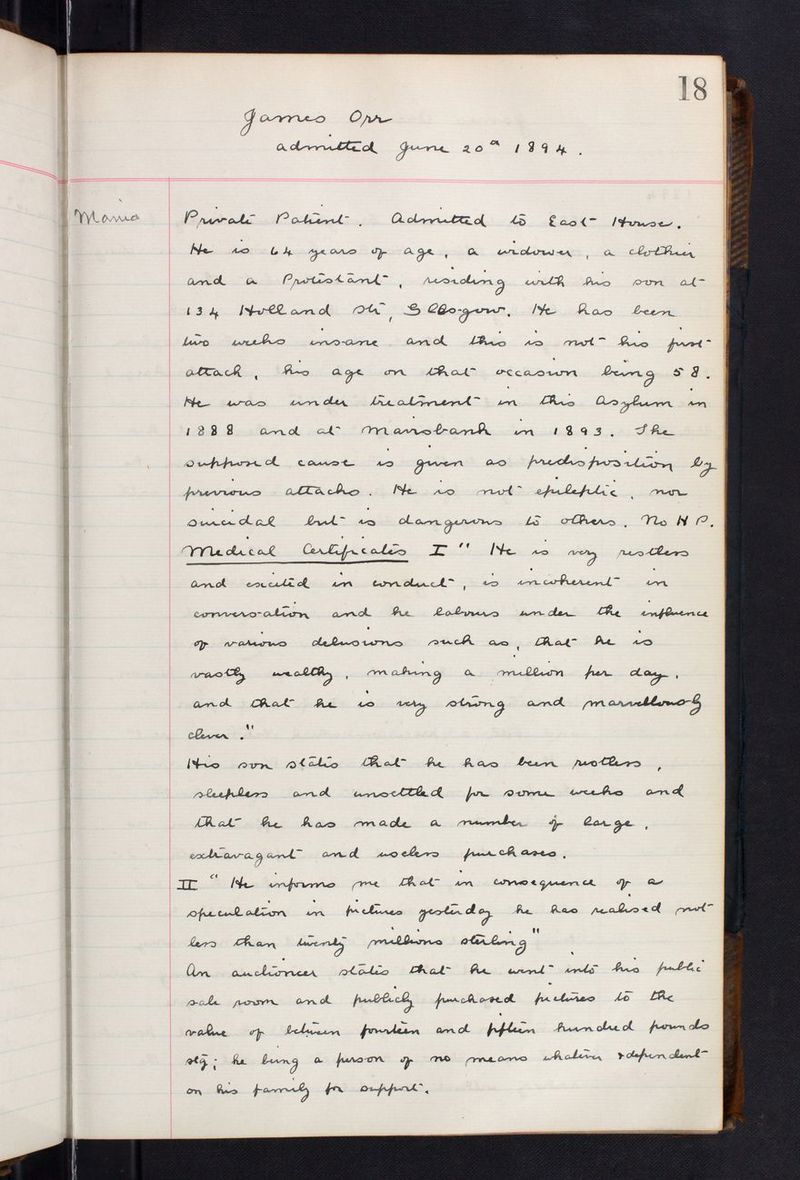 18
James Orr
admitted June 20th 1894.
Mania
Private Patient. Admitted to East House.
He is 64 years of age, a widower, a clothier
and a Protestant, residing with his son at
134 Holland str, Glasgow. He has been
two weeks insane and this is not his first
attack, his age on that occasion being 58.
He was under treatment in this Asylum in
1888 and at Mavisbank in 1893. The
supposed cause is given as predisposition by
previous attacks. He is not epileptic, nor
suicidal but is dangerous to others. No H P.
Medical Certificates I " He is very restless
and excited in conduct, is incoherent in
conversation and he labours under the influence
of various delusions such as, that he is
vastly wealthy, making a million per day,
and that he is very strong and marvellously
clever."
His son states that he has been restless,
sleepless and unsettled for some weeks and
that he has made a number of large,
extravagant and useless purchases.
II " He informs me that in consequence of a
speculation in pictures yesterday he has realised not
less than twenty millions sterling"
An auctioneer states that he went into his public
sale room and publicly purchased pictures to the
value of between fourteen and fifteen hundred pounds
stg; he being a person of no means whatever & dependent
on his family for support.